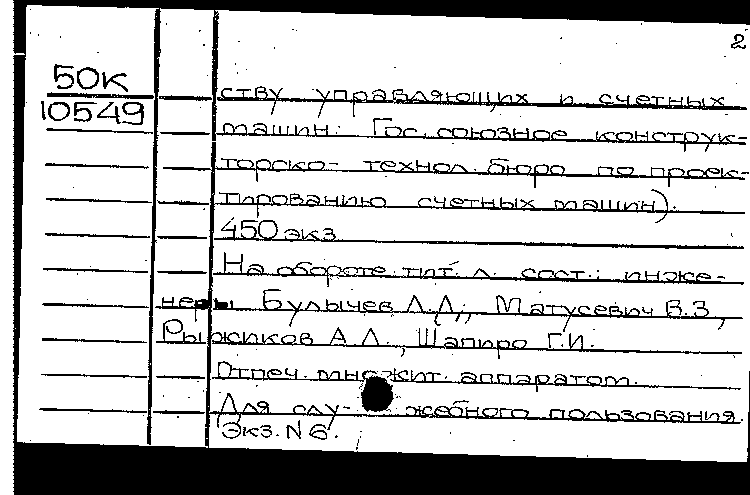 2
50К
10549
ству управляющих и счетных
машин. Гос. союзное конструк=
торско- технол. бюро по проек-
тированию счетных машин).
450 экз.
На обороте тит. л. сост.: инже-
неры Булычев Л.Л., Матусевич В.З.,
Рыжиков А.Л., Шапиро Г.И.
Отпеч. множит. аппаратом.
Для слу- жебного пользования.
Экз. N 6.